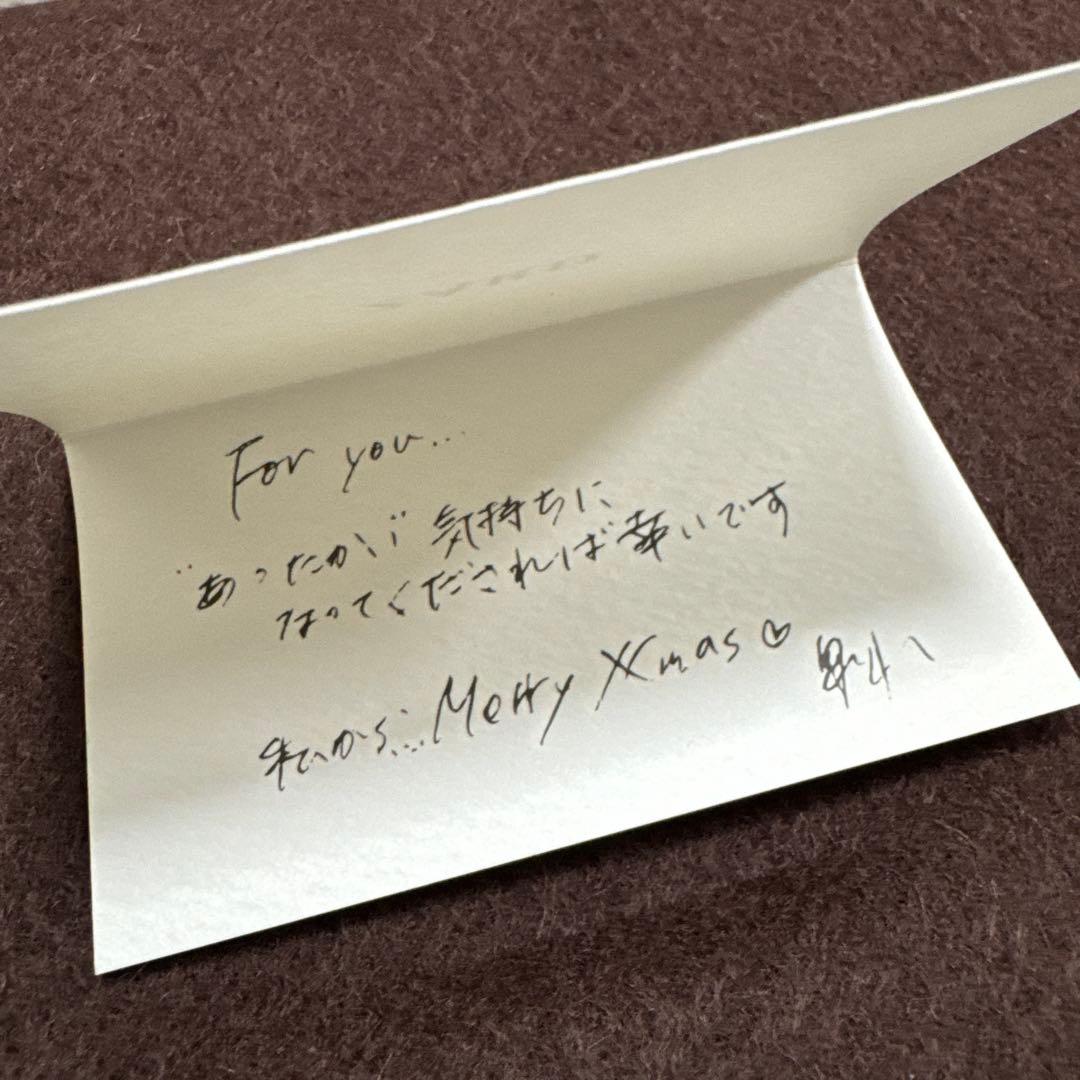 For you...
"あったかい" 気持ちに
なってくだされば幸いです
私から...Merry Xmas♡